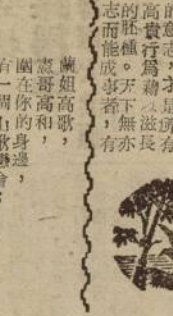 的意志,才是所有
高貴行爲 滋長
的胚種。天下無亦
志而能成事者,有
蘭姐高歌,
憲哥高和,
圍在你的身邊,
有一個山歌